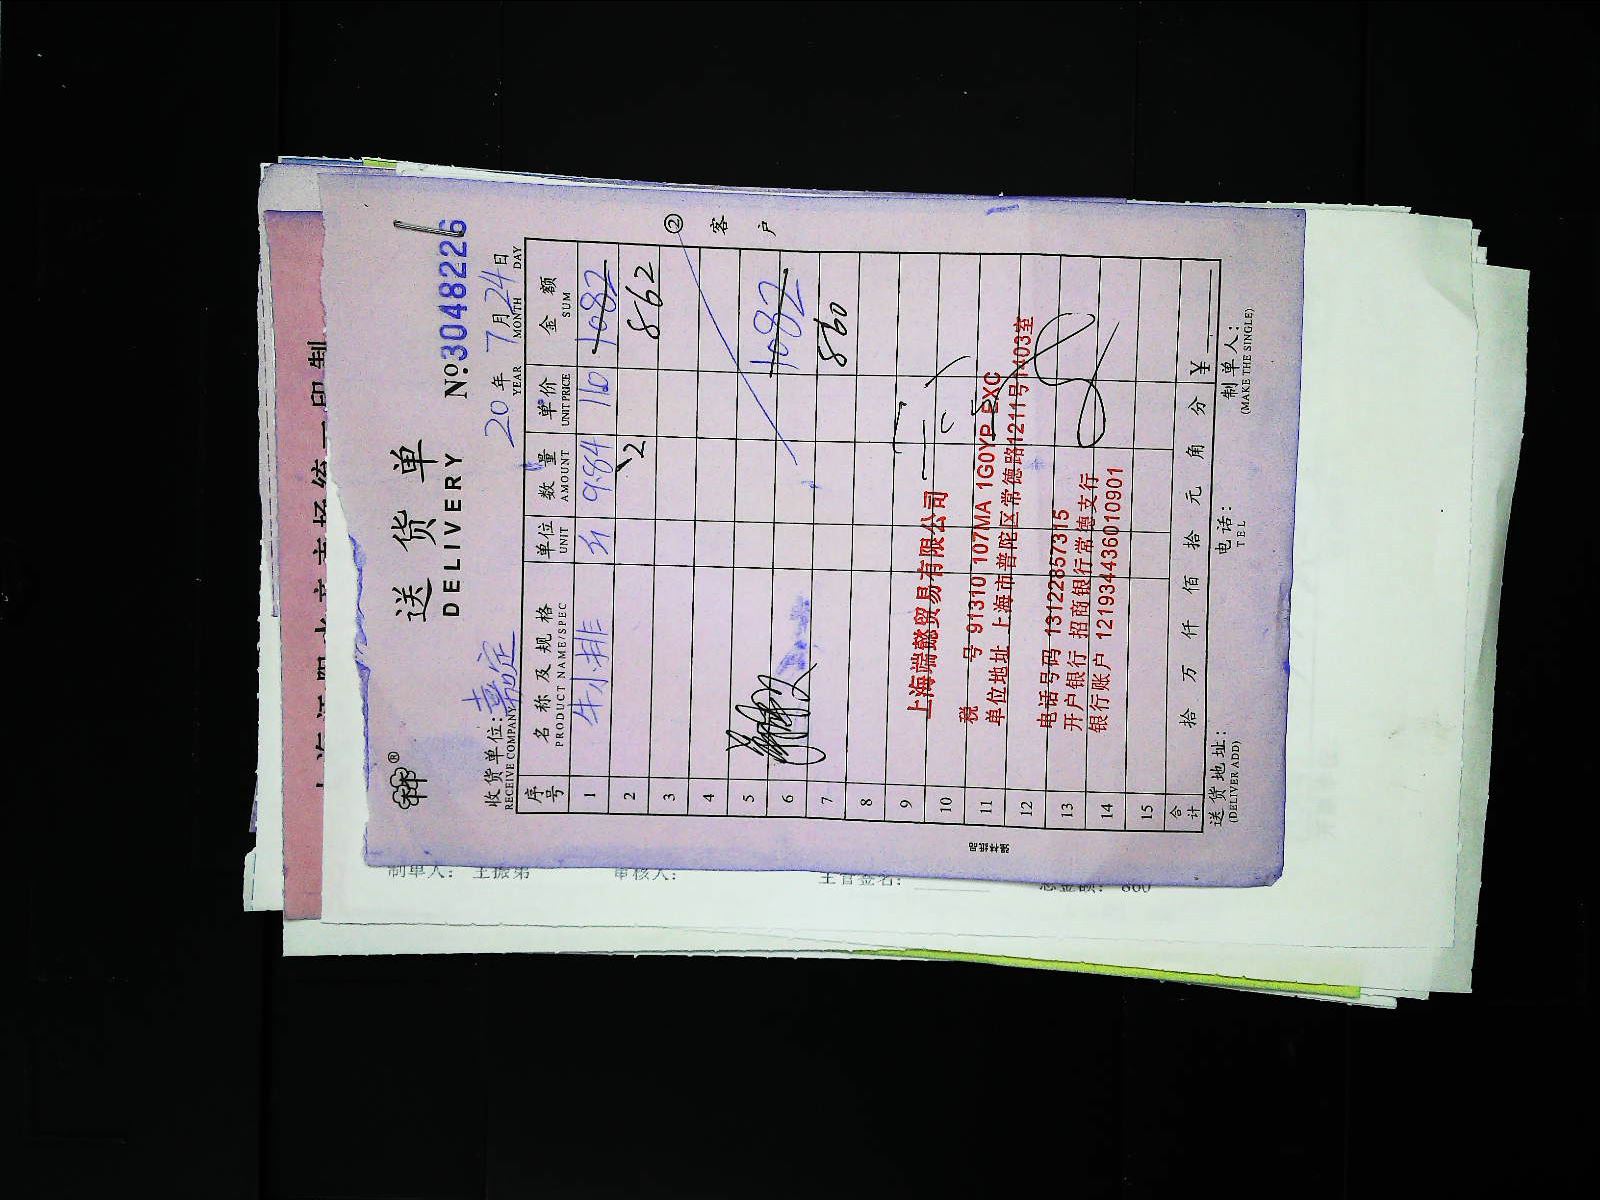 送货单
DELIVERY
№:3048226
收货单位: 嘉定
RECEIVE COMPANY
20 年 7 月 24 日
YEAR MONTH DAY
序号 名称及规格 单位 数量 单价 金额
PRODUCT NAME/SPEC UNIT AMOUNT UNIT PRICE SUM
1 牛小排 斤 9.84 110 1082
2 2 862
3
4
5
6 1082
7 860
8
9
10
11
12
13
14
15
② 客户
上海端懿贸易有限公司
税 号 91310 107MA 1G0YP EXC
单位地址 上海市普陀区常德路1211号1403室
电话号码 13122857315
开户银行 招商银行常德支行
银行账户 121934436010901
合计 拾 万 仟 佰 拾 元 角 分 ¥
送货地址:
(DELIVER ADD)
电话:
TEL
制单人:
(MAKE THE SINGLE)
制单人: 王振弟 审核人: 主管签名: 总金额: 860
统一印制